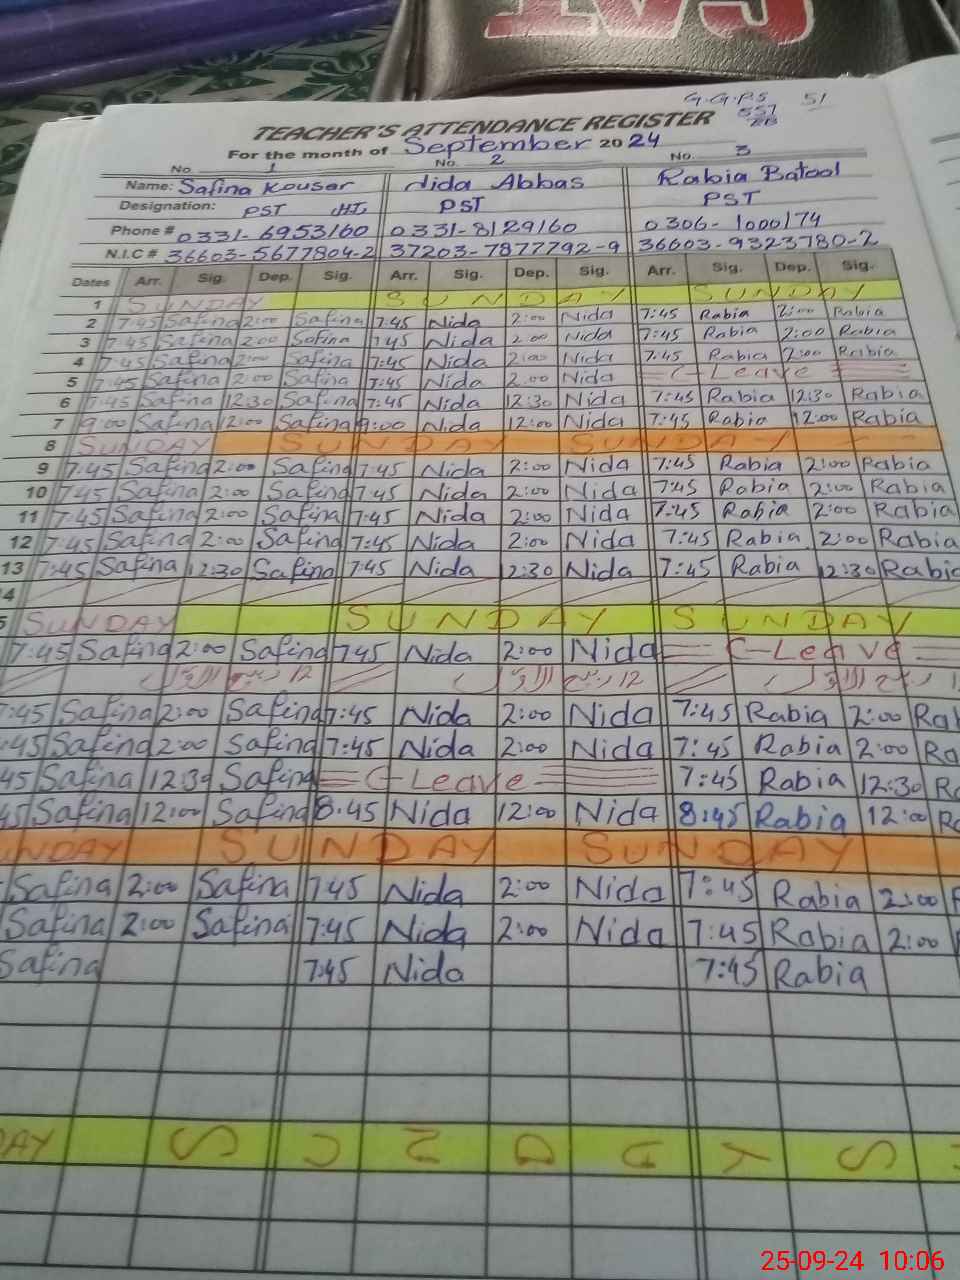 G.G.P.S 51
557
EB
TEACHER'S ATTENDANCE REGISTER
For the month of September 2024
No. 1 No. 2 No. 3
Name: Safina Kousar Nida Abbas Rabia Batool
Designation: PST PST PST
Phone # 0331-6953160 0331-8129160 0306-1000174
N.I.C # 36603-5677804-2 37203-7877792-9 36603-9323780-2
Dates Arr. Sig. Dep. Sig. Arr. Sig. Dep. Sig. Arr. Sig. Dep. Sig.
1 SUNDAY SUNDAY SUNDAY
2 7:45 Safina 2:00 Safina 7:45 Nida 2:00 Nida 7:45 Rabia 2:00 Rabia
3 7:45 Safina 2:00 Safina 7:45 Nida 2:00 Nida 7:45 Rabia 2:00 Rabia
4 7:45 Safina 2:00 Safina 7:45 Nida 2:00 Nida 7:45 Rabia 2:00 Rabia
5 7:45 Safina 2:00 Safina 7:45 Nida 2:00 Nida C-Leave
6 7:45 Safina 12:30 Safina 7:45 Nida 12:30 Nida 7:45 Rabia 12:30 Rabia
7 9:00 Safina 12:00 Safina 9:00 Nida 12:00 Nida 7:45 Rabia 12:00 Rabia
8 SUNDAY SUNDAY SUNDAY
9 7:45 Safina 2:00 Safina 7:45 Nida 2:00 Nida 7:45 Rabia 2:00 Rabia
10 7:45 Safina 2:00 Safina 7:45 Nida 2:00 Nida 7:45 Rabia 2:00 Rabia
11 7:45 Safina 2:00 Safina 7:45 Nida 2:00 Nida 7:45 Rabia 2:00 Rabia
12 7:45 Safina 2:00 Safina 7:45 Nida 2:00 Nida 7:45 Rabia 2:00 Rabia
13 7:45 Safina 12:30 Safina 7:45 Nida 12:30 Nida 7:45 Rabia 12:30 Rabia
4
5 SUNDAY SUNDAY SUNDAY
7:45 Safina 2:00 Safina 7:45 Nida 2:00 Nida C-Leave
12 ربیع الاول 12 ربیع الاول ربیع الاول
:45 Safina 2:00 Safina 7:45 Nida 2:00 Nida 7:45 Rabia 2:00 Rab
:45 Safina 2:00 Safina 7:45 Nida 2:00 Nida 7:45 Rabia 2:00 Ra
45 Safina 12:30 Safina C-Leave 7:45 Rabia 12:30 Ra
45 Safina 12:00 Safina 8:45 Nida 12:00 Nida 8:45 Rabia 12:00 Ra
UNDAY SUNDAY SUNDAY
Safina 2:00 Safina 7:45 Nida 2:00 Nida 7:45 Rabia 2:00
Safina 2:00 Safina 7:45 Nida 2:00 Nida 7:45 Rabia 2:00
Safina 7:45 Nida 7:45 Rabia
DAY SUNDAY S
25-09-24 10:06